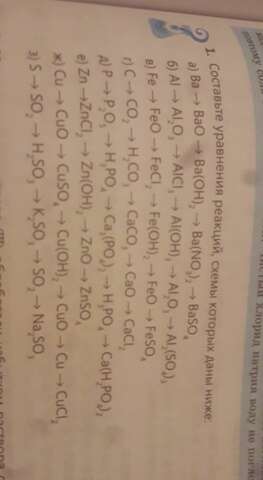 1. Составьте уравнения реакций, схемы которых даны ниже:
а) Ba → BaO → Ba(OH)₂ → Ba(NO₃)₂ → BaSO₄
б) Al → Al₂O₃ → AlCl₃ → Al(OH)₃ → Al₂O₃ → Al₂(SO₄)₃
в) Fe → FeO → FeCl₂ → Fe(OH)₂ → FeO → FeSO₄
г) C → CO₂ → H₂CO₃ → CaCO₃ → CaO → CaCl₂
д) P → P₂O₅ → H₃PO₄ → Ca₃(PO₄)₂ → H₃PO₄ → Ca(H₂PO₄)₂
е) Zn → ZnCl₂ → Zn(OH)₂ → ZnO → ZnSO₄
ж) Cu → CuO → CuSO₄ → Cu(OH)₂ → CuO → Cu → CuCl₂
з) S → SO₂ → H₂SO₃ → K₂SO₃ → SO₂ → Na₂SO₃